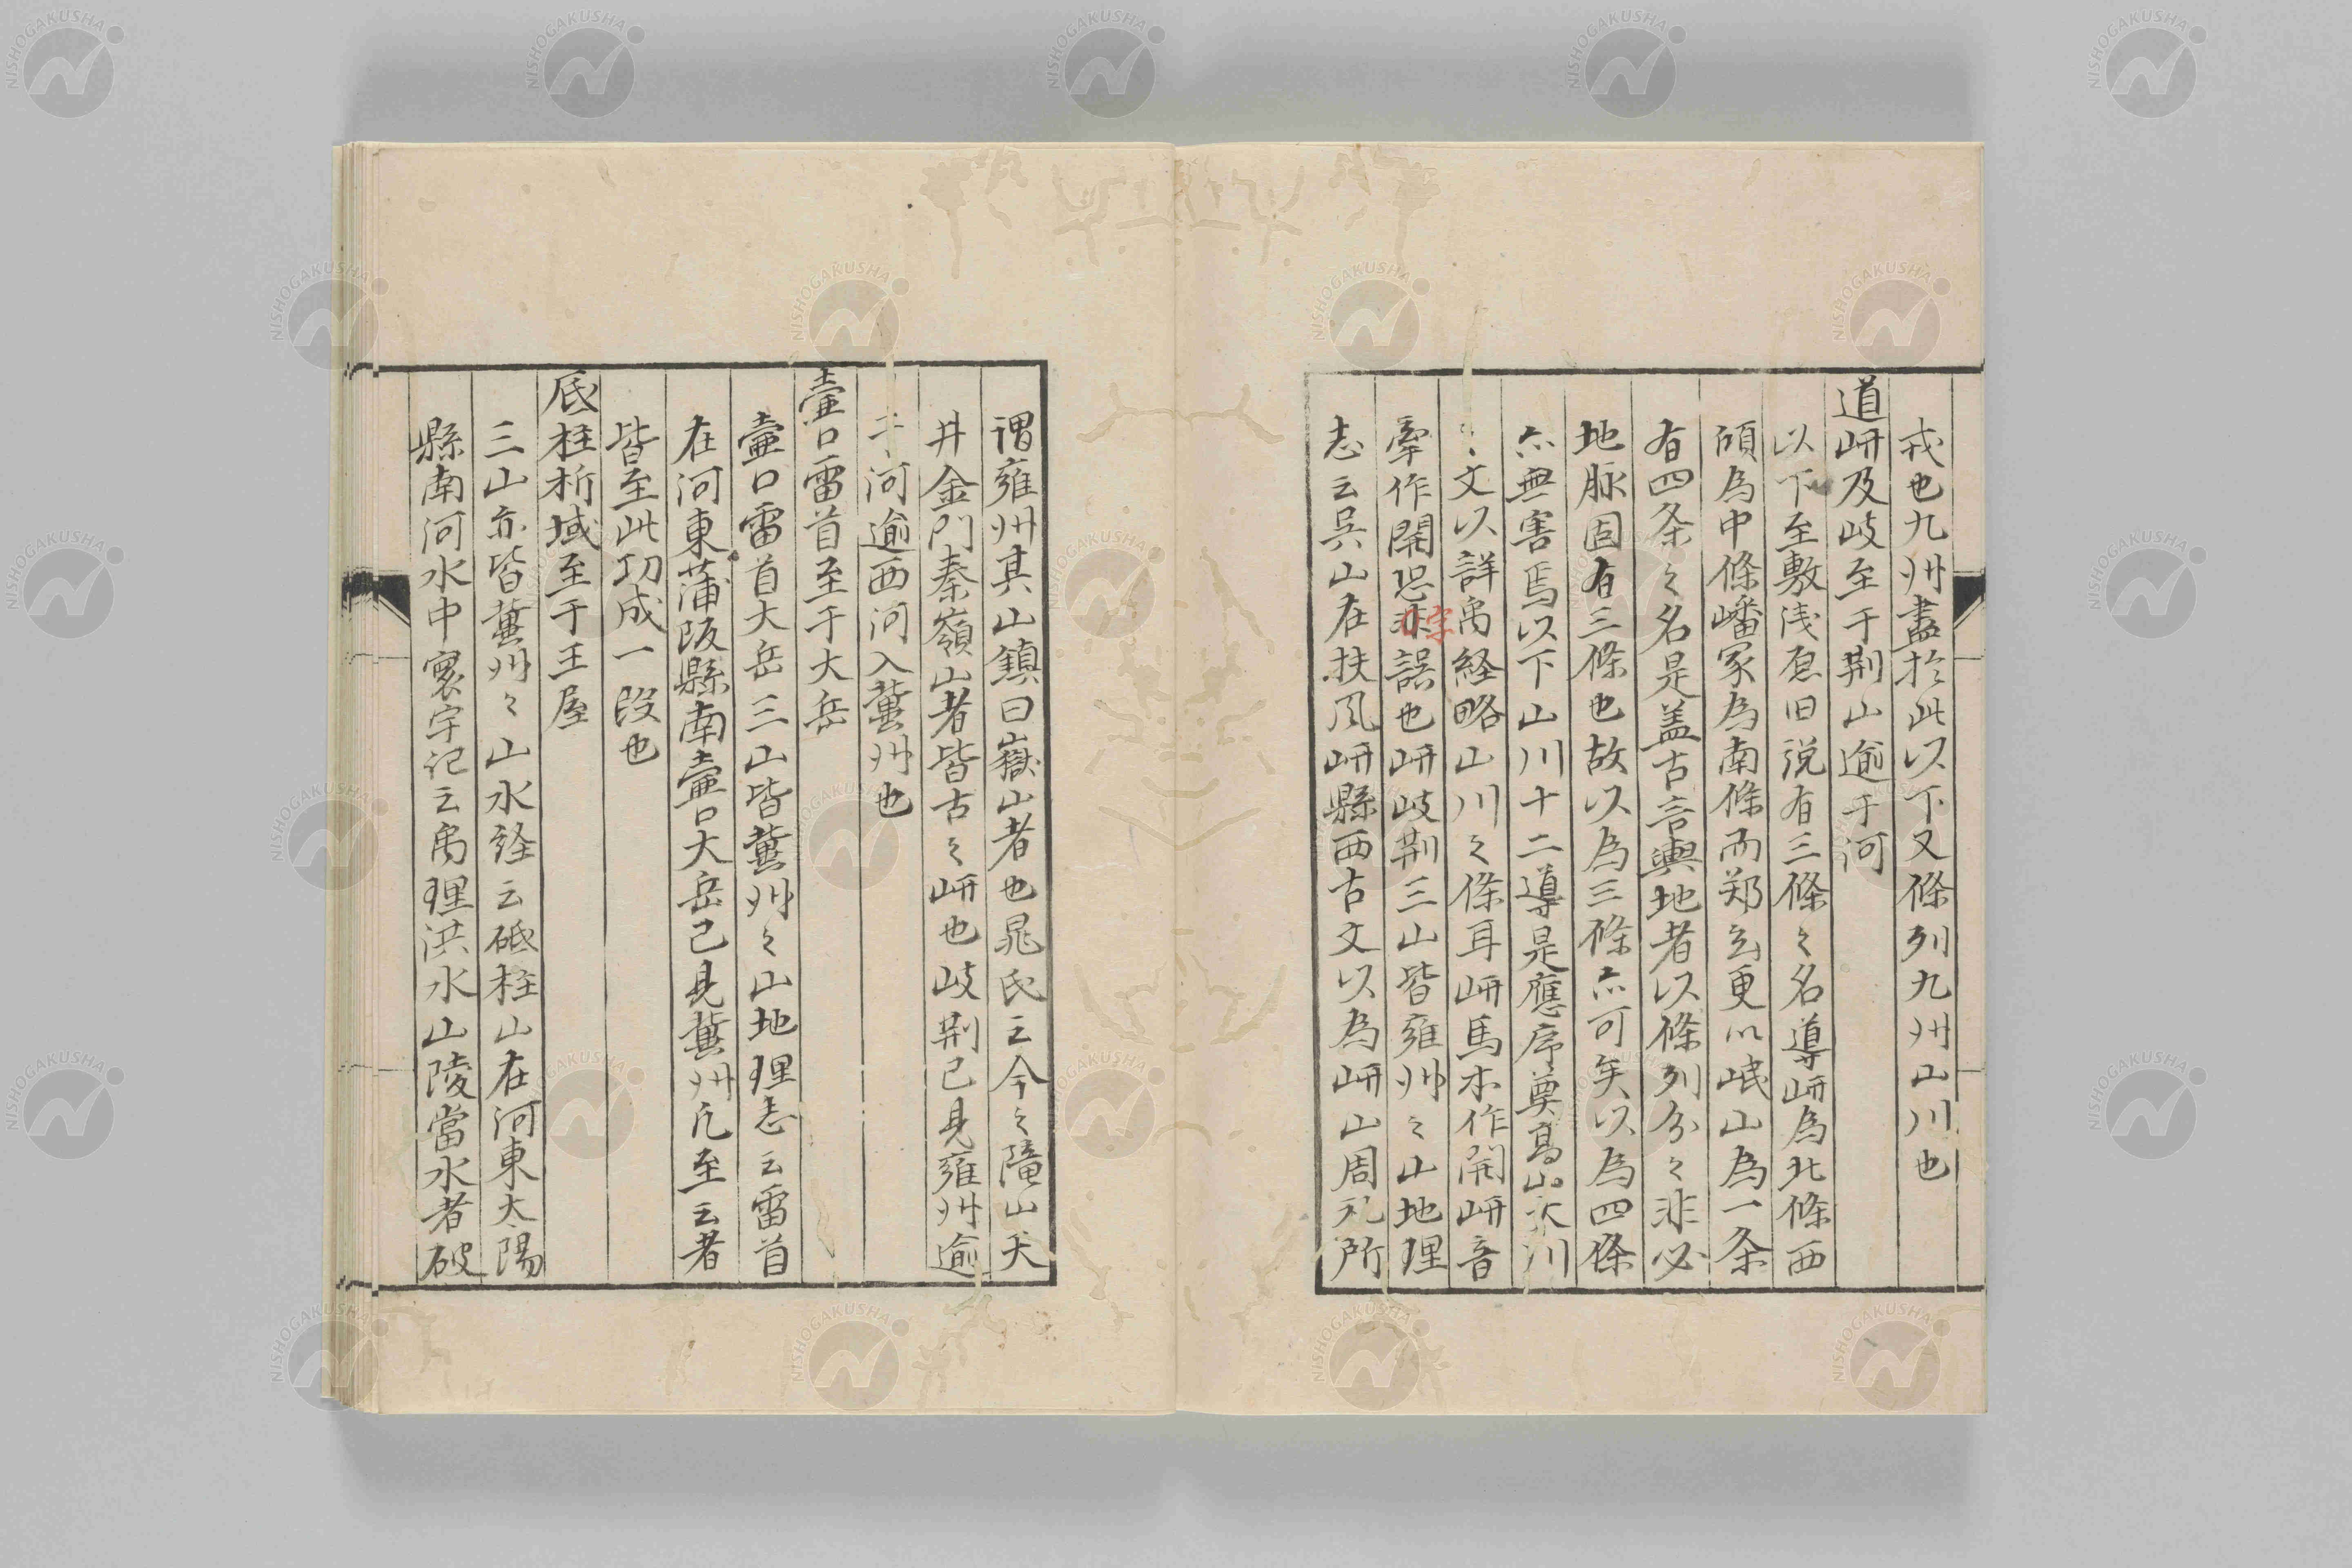 戎也九州盡於此以下又條列九州山川也
道岍及岐至于荆山逾于河
以下至敷浅原旧説有三條之名導岍為北條西
傾為中條嶓冢為南條而郑玄更以岷山為一条
有四条之名是盖古言輿地者以條列分之非必
地脉固有三條也故以為三條亦可矣以為四條
亦無害焉以下山川十二導是應序奠高山大川
之文以詳禹経略山川之條耳岍馬本作開岍音
牽作開恐非誤也岍岐荆三山皆雍州之山地理
字
志云吴山在扶风岍縣西古文以為岍山周礼所
謂雍州其山鎮曰嶽山者也晁氏云今之隴山天
井金門秦嶺山者皆古之岍也岐荆已見雍州逾
于河逾西河入冀州也
壷口雷首至于大岳
壷口雷首大岳三山皆冀州之山地理志云雷首
在河東蒲阪縣南壷口大岳已見冀州凡至云者
皆至此功成一段也
底柱析城至于王屋
三山亦皆冀州之山水経云砥柱山在河東大陽
縣南河水中寰宇记云禹理洪水山陵當水者破